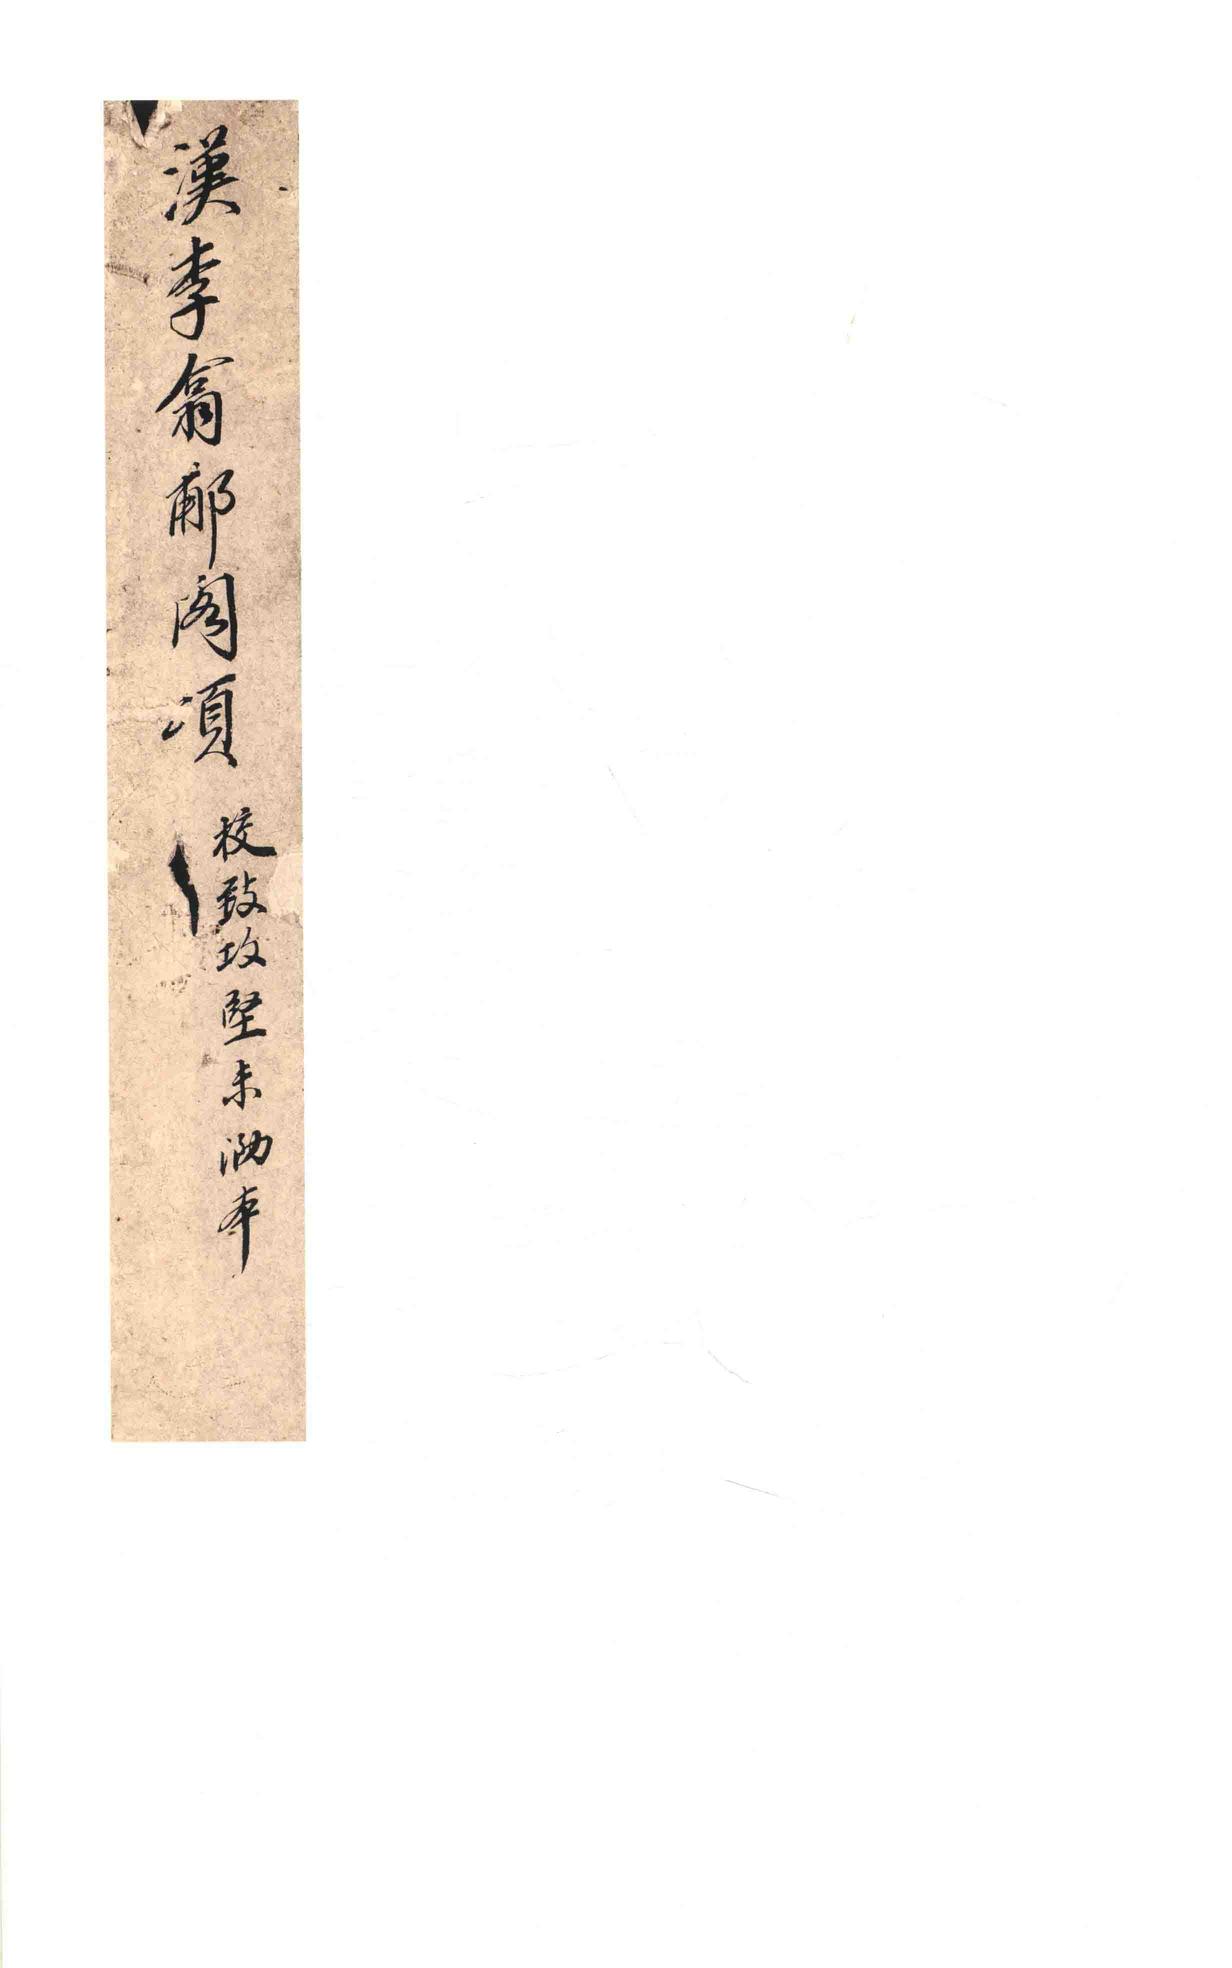 漢李翕郙閣頌
校致攻堅未泐本